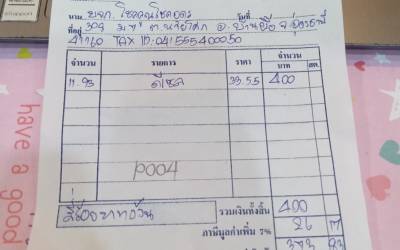 นาม บจก. โชคคูณโชคถาวร วันที่
ที่อยู่ 309 ม.4 ต.บ้านผือ อ.บ้านผือ จ.อุดรธานี
41160 TAX ID: 041555400050
จำนวน รายการ ราคา จำนวน บาท สต.
11.93 ดีเซล 33.55 400
P004
สี่ร้อยบาทถ้วน รวมเงินทั้งสิ้น 400
ภาษีมูลค่าเพิ่ม 7% 26 17
373 83
have a good